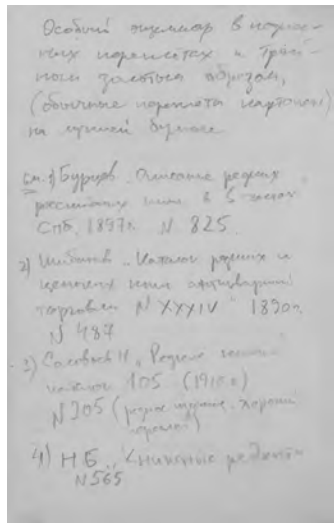 Особый экземпляр в кожа-
ных переплётах с трой-
ным золотым обрезом,
(обычные переплёты картонаж)
на лучшей бумаге.
см. 1) Бурцев. Описание редких
российских книг в 5 частях
СПб, 1897г. N 825.
2) Шибанов "Каталог редких и
ценных книг антикварной
торговли N XXXIV" 1890г.
N 487
3) Соловьев Н. "Редкие книги"
каталог 105 (1910г.)
N 305 (редкое издание. хороший
4) Н.Б. "Книжные редкости"
N 565